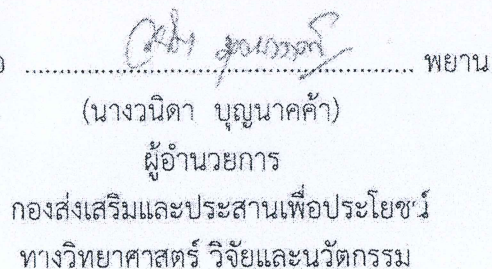 พยาน
(นางวนิดา บุญนาคค้า)
ผู้อำนวยการ
กองส่งเสริมและประสานเพื่อประโยชน์
ทางวิทยาศาสตร์ วิจัยและนวัตกรรม